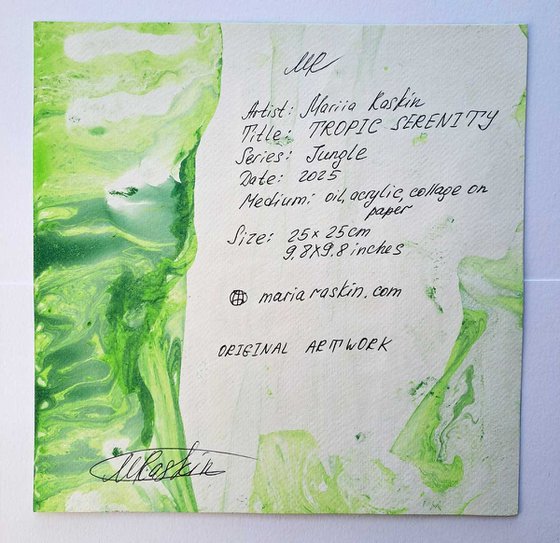 MR
Artist: Mariia Raskin
Title: TROPIC SERENITY
Series: Jungle
Date: 2025
Medium: oil, acrylic, collage on
paper
Size: 25 x 25 cm
9.8 x 9.8 inches
mariaraskin.com
ORIGINAL ARTWORK
MRaskin